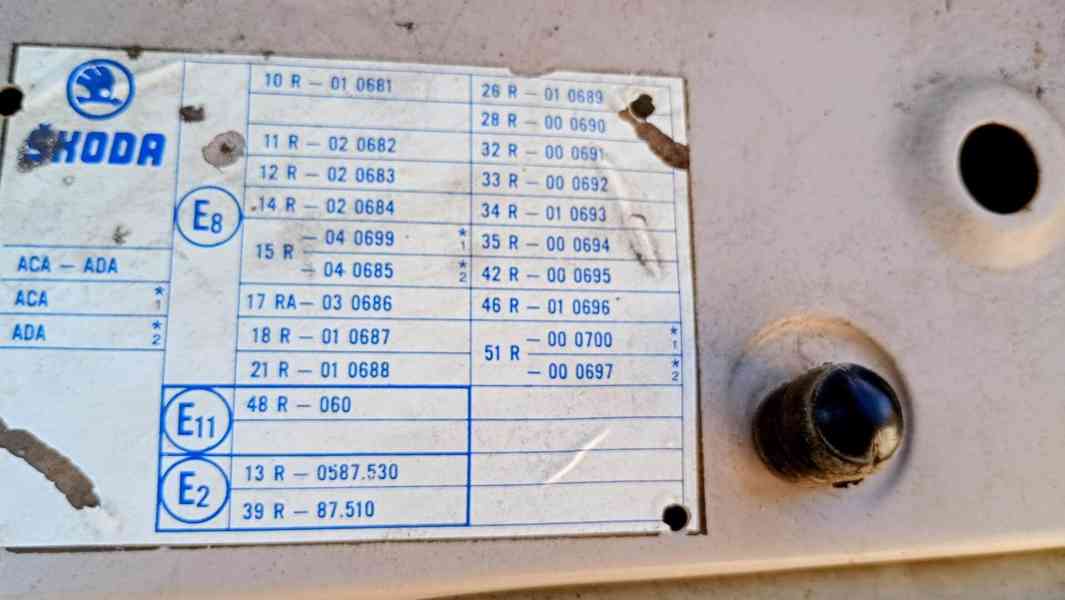 ŠKODA
ACA – ADA
ACA *1
ADA *2
E8
10 R – 01 0681
11 R – 02 0682
12 R – 02 0683
14 R – 02 0684
15 R – 04 0699 *1
– 04 0685 *2
17 RA – 03 0686
18 R – 01 0687
21 R – 01 0688
26 R – 01 0689
28 R – 00 0690
32 R – 00 0691
33 R – 00 0692
34 R – 01 0693
35 R – 00 0694
42 R – 00 0695
46 R – 01 0696
51 R – 00 0700 *1
– 00 0697 *2
E11
48 R – 060
E2
13 R – 0587.530
39 R – 87.510